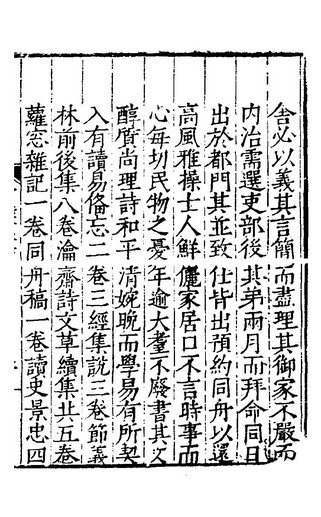 舍必以義其言簡而盡理其御家不嚴而
内治需選吏部後其弟兩月而拜命同日
出於都門其並致仕皆出預約同舟以還
高風雅操士人鮮儷家居口不言時事而
心每切民物之憂年逾大耋不廢書其文
醇質尚理詩和平清婉晚而學易有所契
入有讀易備忘二卷三經集説三卷節義
林前後集八卷瀹齋詩文草續集共五卷
蘿窓雜記一卷同舟稿一卷讀史景忠四